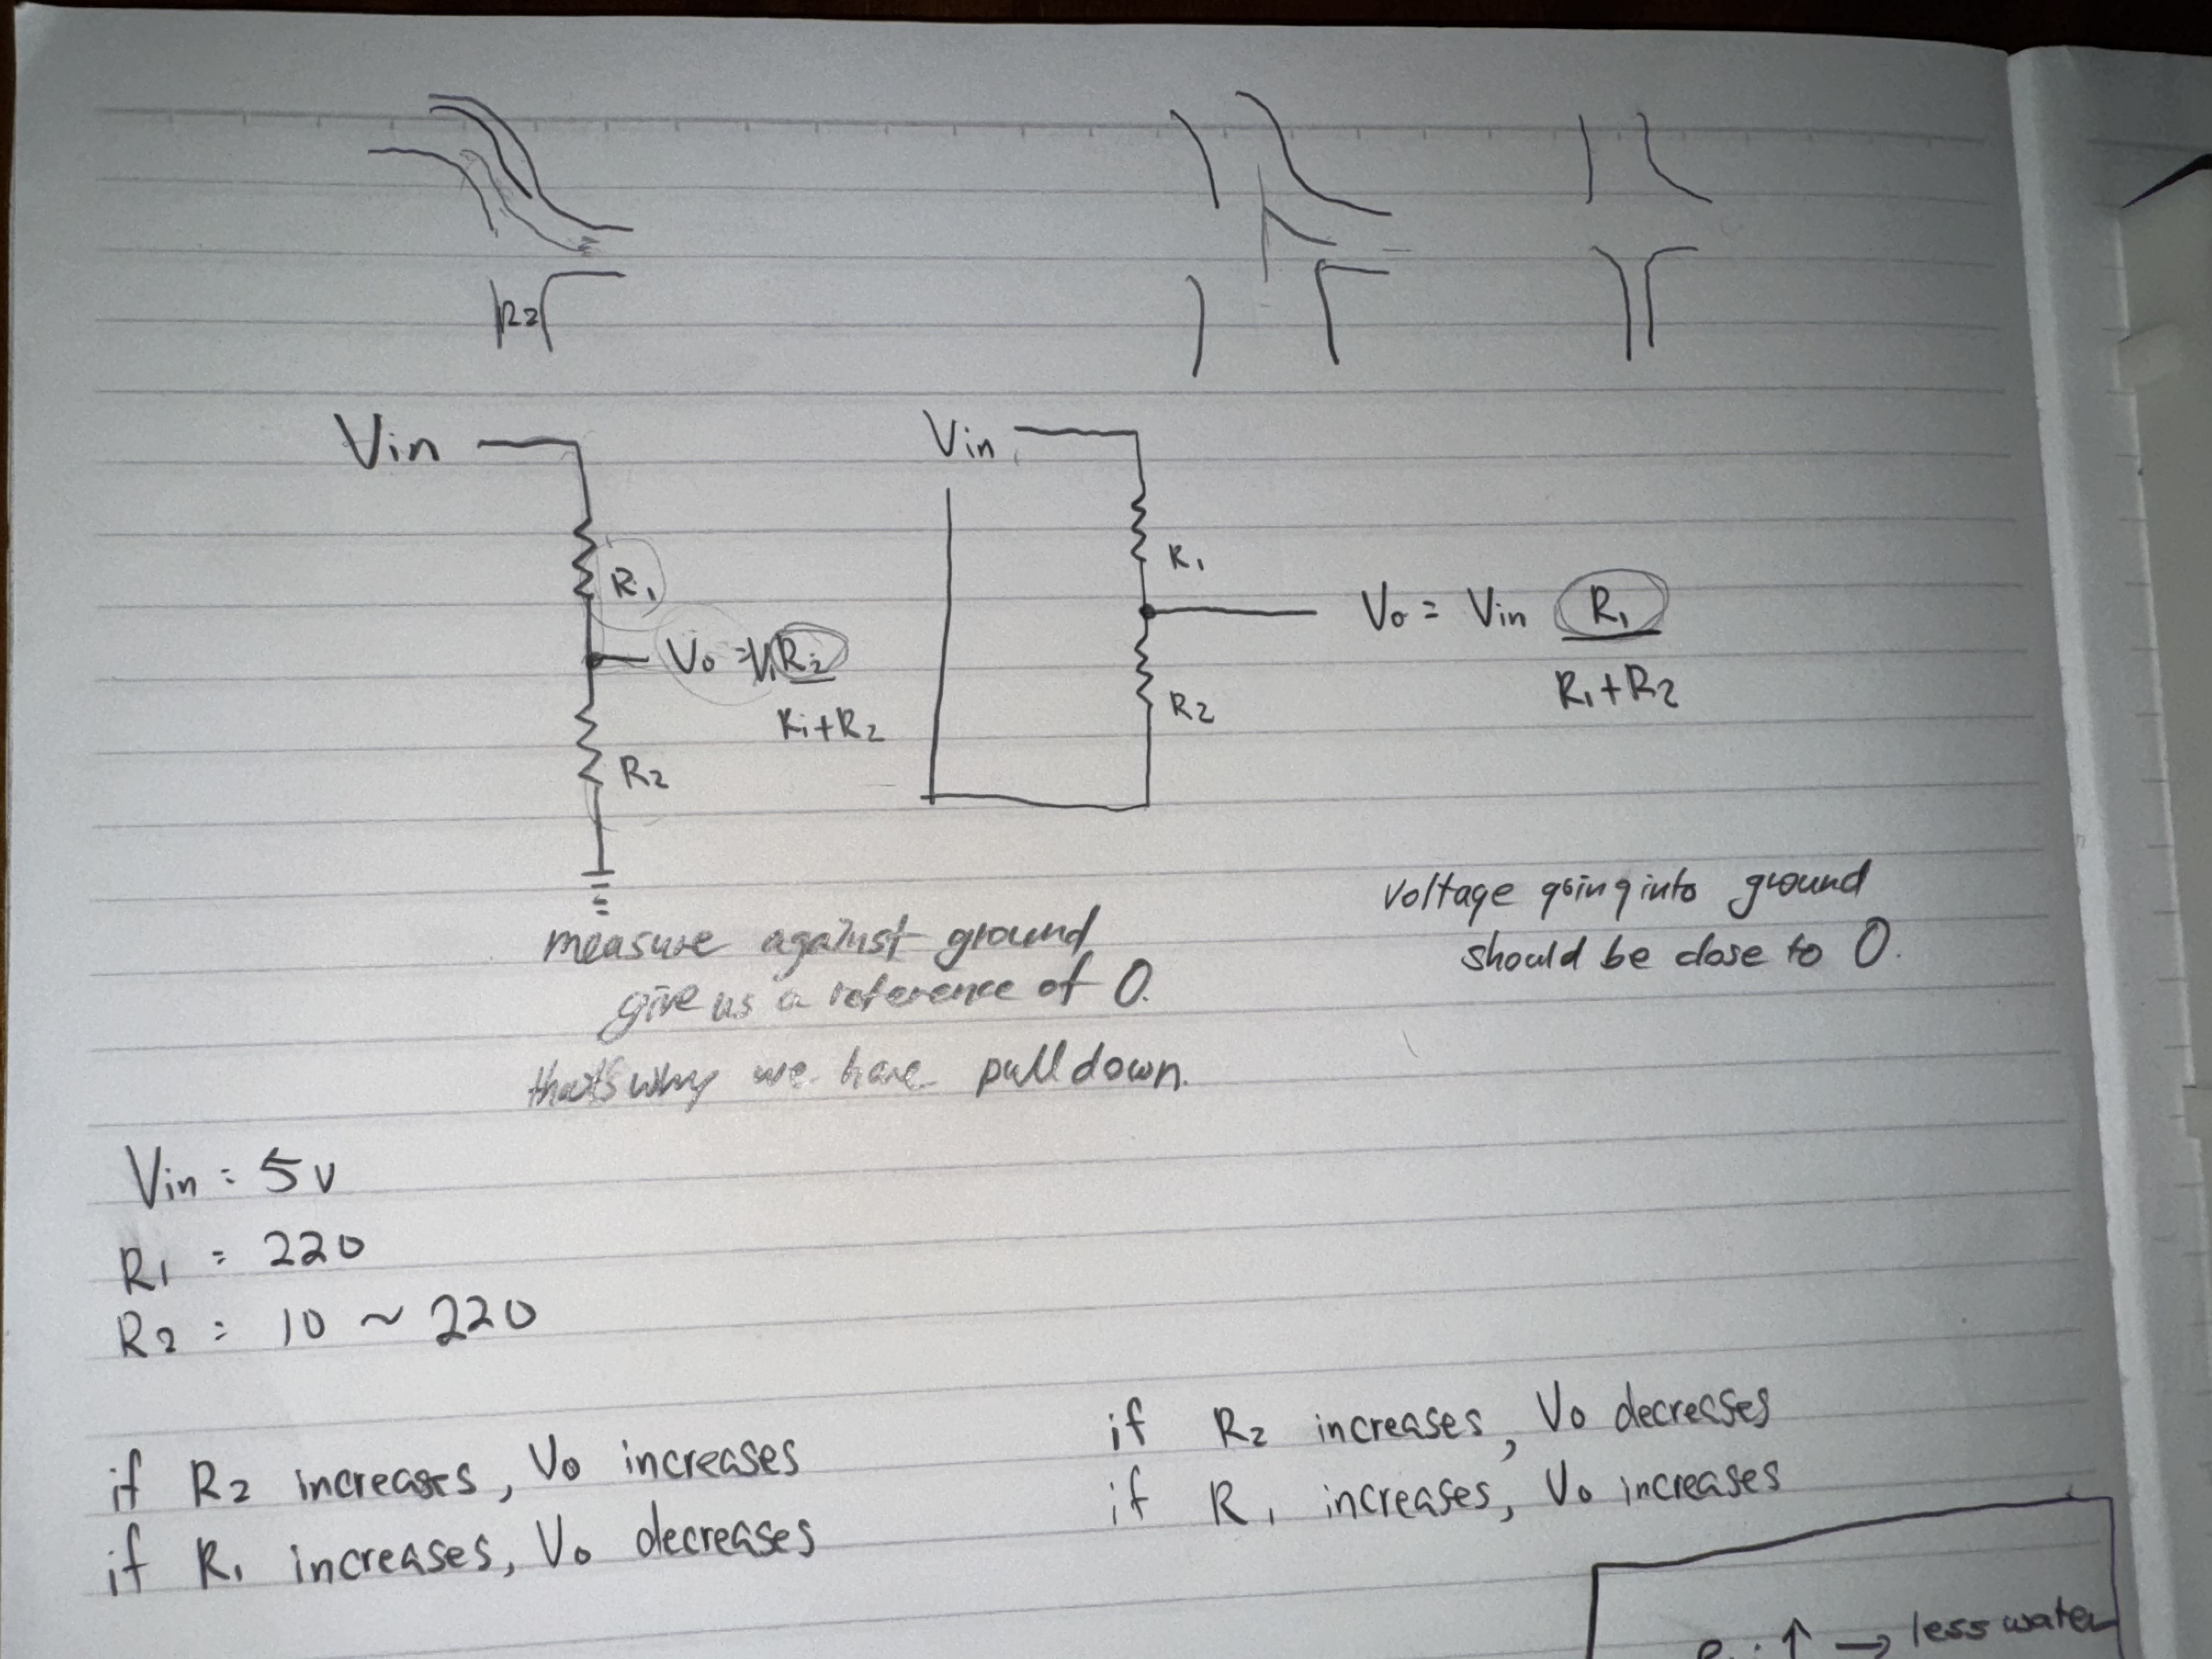 R2
Vin
R1
Vo = Vi R2
R1+R2
R2
Vin
R1
Vo = Vin R1
R1+R2
R2
measure against ground
give us a reference of 0.
that's why we have pull down.
voltage going into ground
should be close to 0.
Vin = 5V
R1 = 220
R2 = 10 ~ 220
if R2 increases, Vo increases
if R1 increases, Vo decreases
if R2 increases, Vo decreases
if R1 increases, Vo increases
↑ → less water